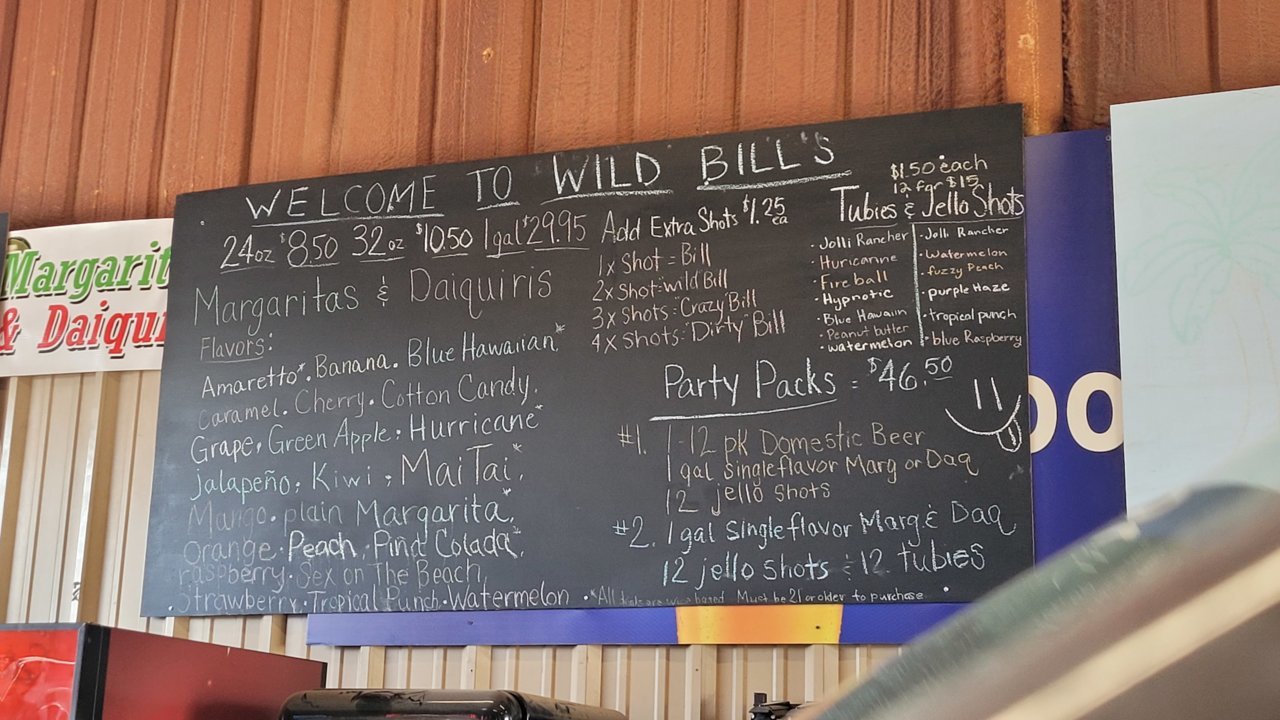 Margarit
& Daiqui
WELCOME TO WILD BILL'S
24oz $8.50 32oz $10.50 1gal $29.95
Margaritas & Daiquiris
Flavors:
Amaretto*. Banana. Blue Hawaiian*
Caramel. Cherry. Cotton Candy.
Grape. Green Apple. Hurricane*
Jalapeño. Kiwi. Mai Tai*
Mango. plain Margarita*
Orange. Peach. Pina Colada*
raspberry. Sex on The Beach
Strawberry. Tropical Punch. Watermelon
Add Extra Shots $1.25 ea
1x Shot = Bill
2x Shot "wild" Bill
3x Shots: "Crazy" Bill
4x Shots: "Dirty" Bill
$1.50 each
12 for $15
Tubies & Jello Shots
· Jolli Rancher
· Huricanne
· Fireball
· Hypnotic
· Blue Hawaiin
· Peanut butter
· watermelon
· Jolli Rancher
· Watermelon
· fuzzy Peach
· purple Haze
· tropical punch
· blue Raspberry
Party Packs = $46.50
#1. 1-12 pk Domestic Beer
1 gal single flavor Marg or Daq
12 jello shots
#2. 1 gal single flavor Marg & Daq
12 jello shots & 12 tubies
*All are based Must be 21 or older to purchase
OO